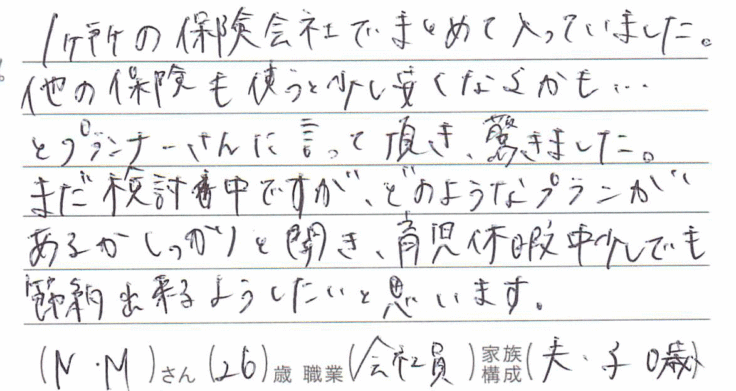 1ヶ所の保険会社でまとめて入っていました。
他の保険も使うと少し安くなるかも…
とプランナーさんに言って頂き、驚きました。
まだ検討中ですが、どのようなプランが
あるかしっかりと聞き、育児休暇中少しでも
節約出来るようしたいと思います。
(N・M)さん(26)歳 職業(会社員)家族構成(夫・子0歳)